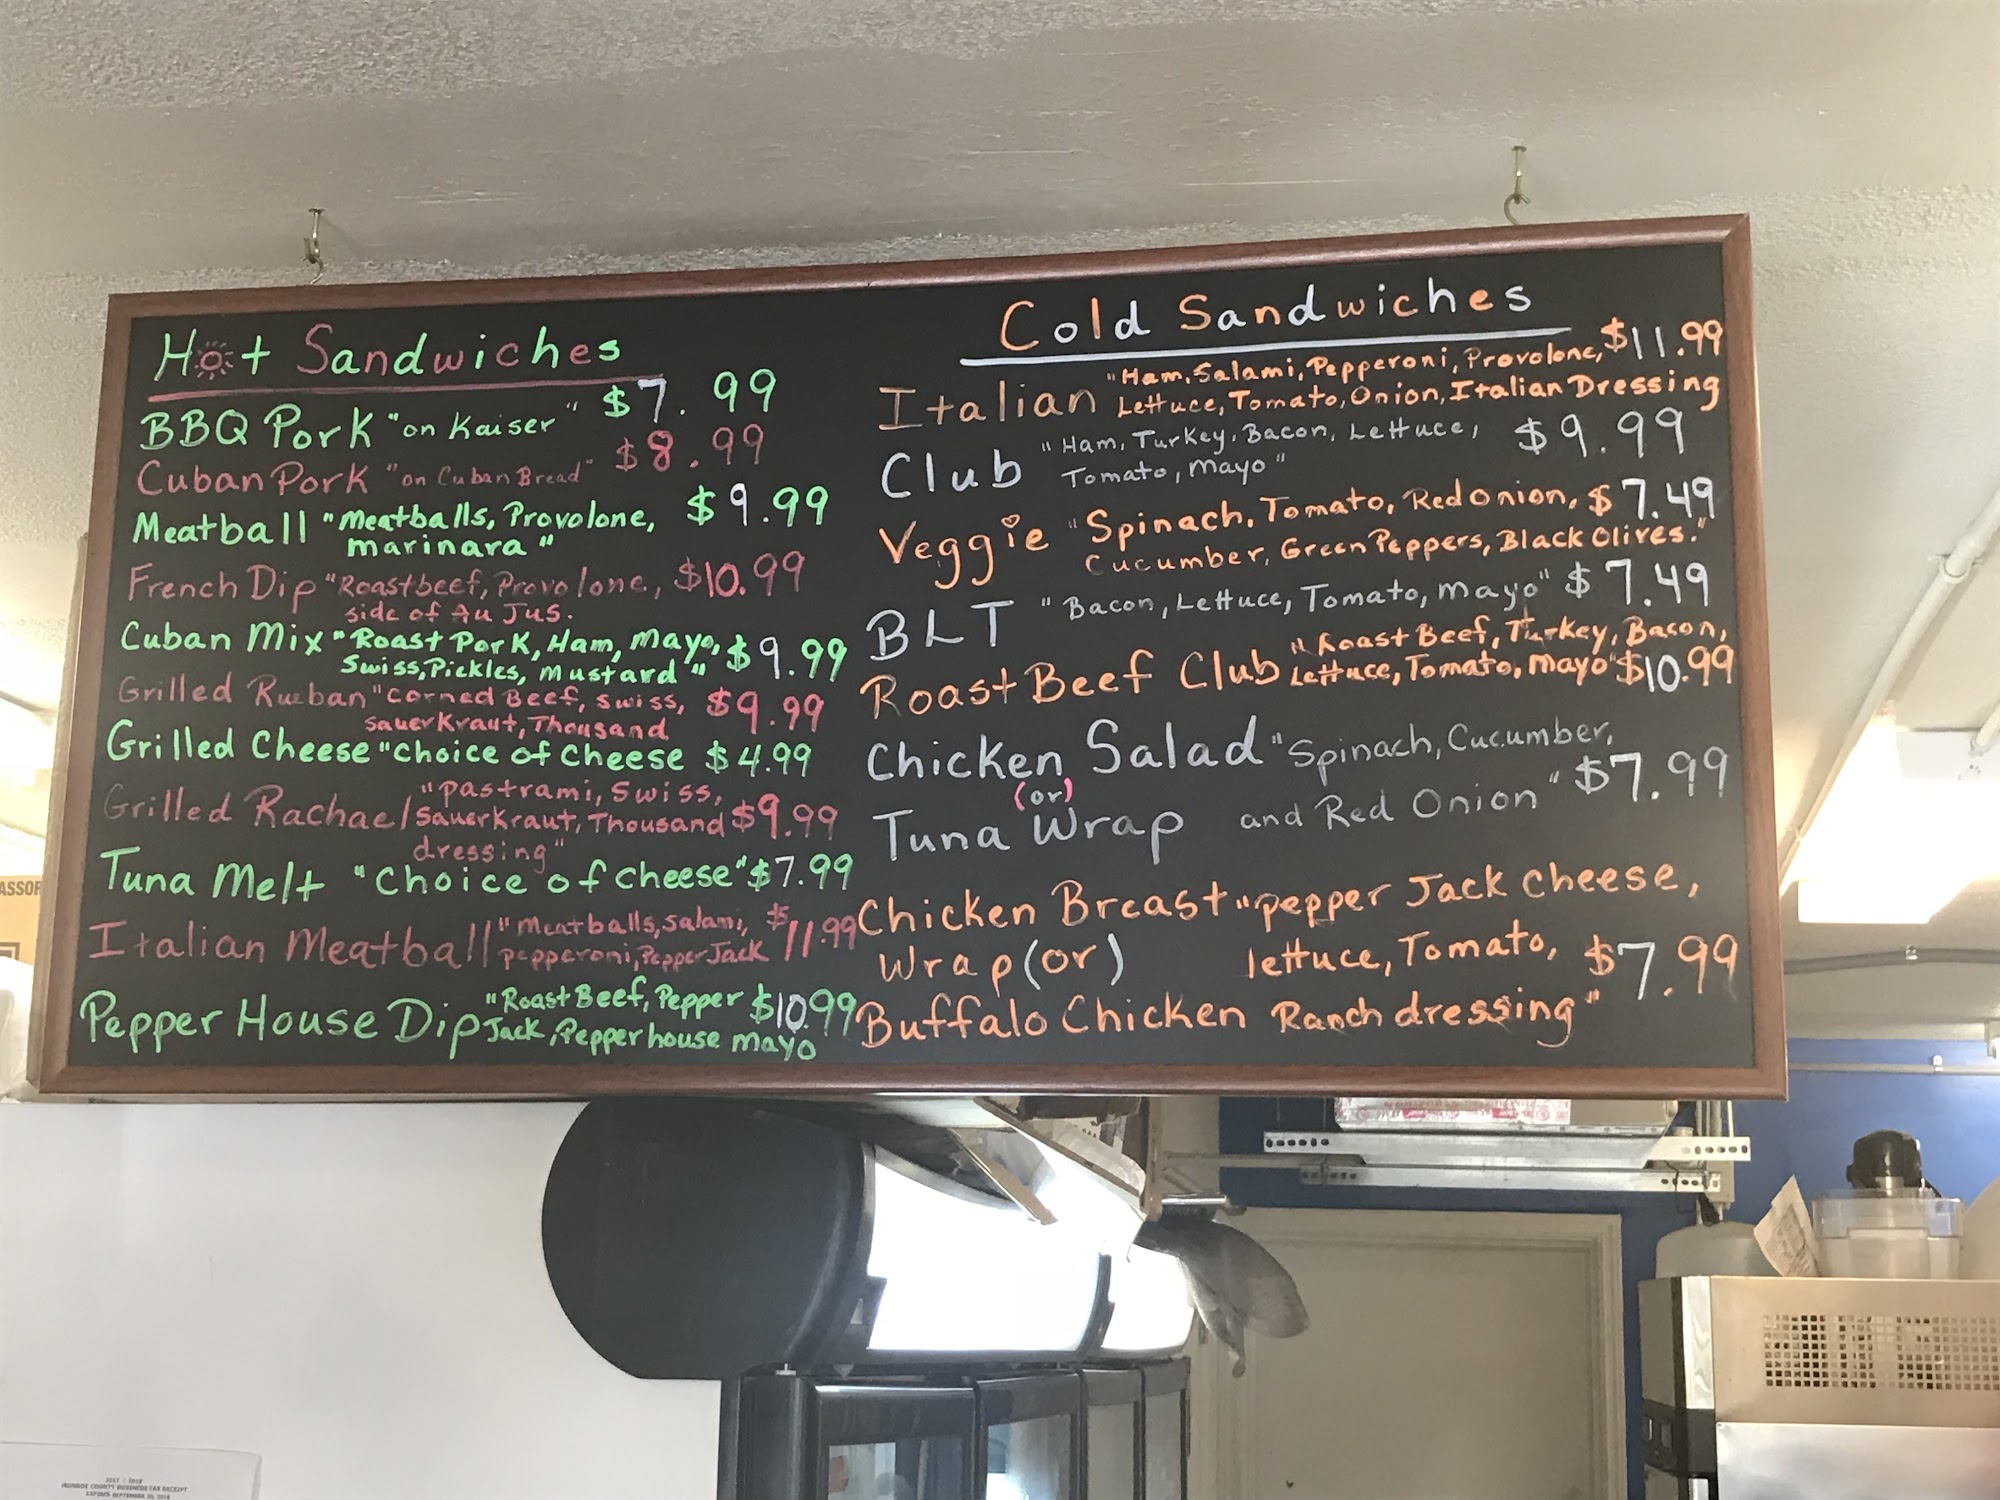 Hot Sandwiches
BBQ Pork "on Kaiser" $7.99
Cuban Pork "on Cuban Bread" $8.99
Meatball "Meatballs, Provolone, $9.99
marinara"
French Dip "Roastbeef, Provolone, $10.99
side of Au Jus.
Cuban Mix "Roast Pork, Ham, Mayo, $9.99
Swiss, Pickles, Mustard"
Grilled Rueban "Corned Beef, Swiss, $9.99
Sauerkraut, Thousand
Grilled Cheese "Choice of Cheese $4.99
Grilled Rachael "pastrami, Swiss,
Sauerkraut, Thousand $9.99
dressing"
Tuna Melt "Choice of Cheese" $7.99
Italian Meatball "Meatballs, Salami, $11.99
pepperoni, Pepper Jack
Pepper House Dip "Roast Beef, Pepper $10.99
Jack, Pepperhouse mayo
Cold Sandwiches
Italian "Ham, Salami, Pepperoni, Provolone, $11.99
Lettuce, Tomato, Onion, Italian Dressing
Club "Ham, Turkey, Bacon, Lettuce, $9.99
Tomato, mayo"
Veggie "Spinach, Tomato, Red Onion, $7.49
Cucumber, Green Peppers, Black Olives."
BLT "Bacon, Lettuce, Tomato, mayo" $7.49
Roast Beef Club "Roast Beef, Turkey, Bacon,
Lettuce, Tomato, mayo" $10.99
Chicken Salad "Spinach, Cucumber,
(or)
Tuna Wrap and Red Onion" $7.99
Chicken Breast "pepper Jack cheese,
Wrap (or) lettuce, Tomato, $7.99
Buffalo Chicken Ranch dressing"
ASSOR
MONROE COUNTY BUSINESS TAX RECEIPT
EXPIRES SEPTEMBER 30, 2018